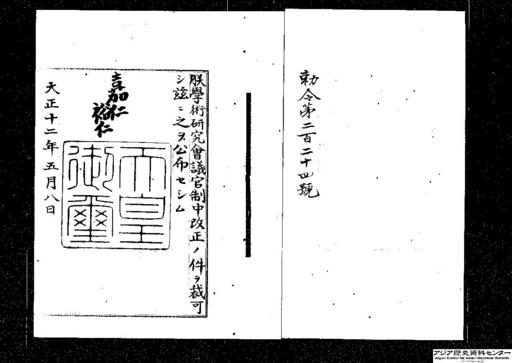 勅令第二百二十四號
朕學術研究會議官制中改正ノ件ヲ裁可
シ茲ニ之ヲ公布セシム
嘉仁
裕仁
天皇
御璽
大正十二年五月八日
アジア歴史資料センター
Japan Center for Asian Historical Records